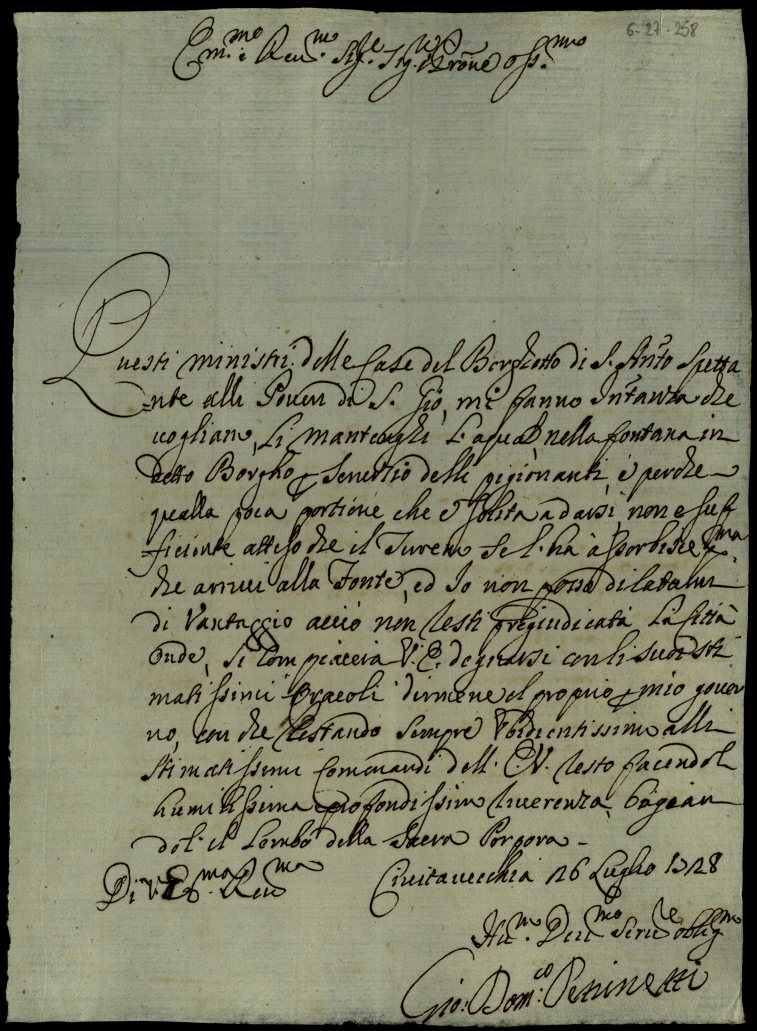 6-27-258
Em.mo e Reu.mo Sig.e Sig.re Prone oss.mo
Questi ministri delle Case del Borghetto di S. Ant.o Spetta
nte alli Poueri di S. Gio, mi fanno Instanza che
uogliano, li mantenghi l'aqua nella fontana in
detto Borgho p seruitio delli pigionanti, e perche
quella poca portione che è solita a darsi, non e suf
ficiente atteso che il Terreno se l'ha à sorbisce p.ma
che arriui alla Fonte, ed Io non posso dilatarmi
di Vantaggio acciò non resti pregiudicata la Città
Onde, si compiacerà V. E. degnarsi con li suoi sti
matissimi Oracoli dirmene il proprio p mio gouer
no, con che restando sempre Vbidientissimo alli
stimatissimi Commandi dell' E.V. resto facendoli
humilissima e profondissima riuerenza, bagian
doli il Lembo della Sacra Porpora -
Di V. Em.ma Reu.ma
Ciuitauecchia 26 Luglio 1728
Hu.mo Deu.mo Seru.re oblig.mo
Gio: Dom.co Pettinetti